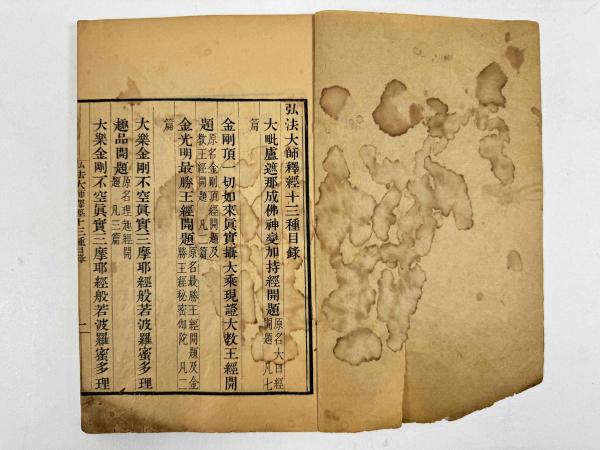 弘法大師釋經十三種目錄
大毗盧遮那成佛神變加持經開題 原名大日經開題 凡七篇
金剛頂一切如來眞實攝大乘現證大敎王經開
題 原名金剛頂經開題及敎王經開題 凡二篇
金光明最勝王經開題 原名最勝王經開題及金勝王經秘密伽陀 凡二篇
大樂金剛不空眞實三摩耶經般若波羅蜜多理
趣品開題 原名理趣經開題 凡三篇
大樂金剛不空眞實三摩耶經般若波羅蜜多理
弘法大師釋經十三種目錄 一